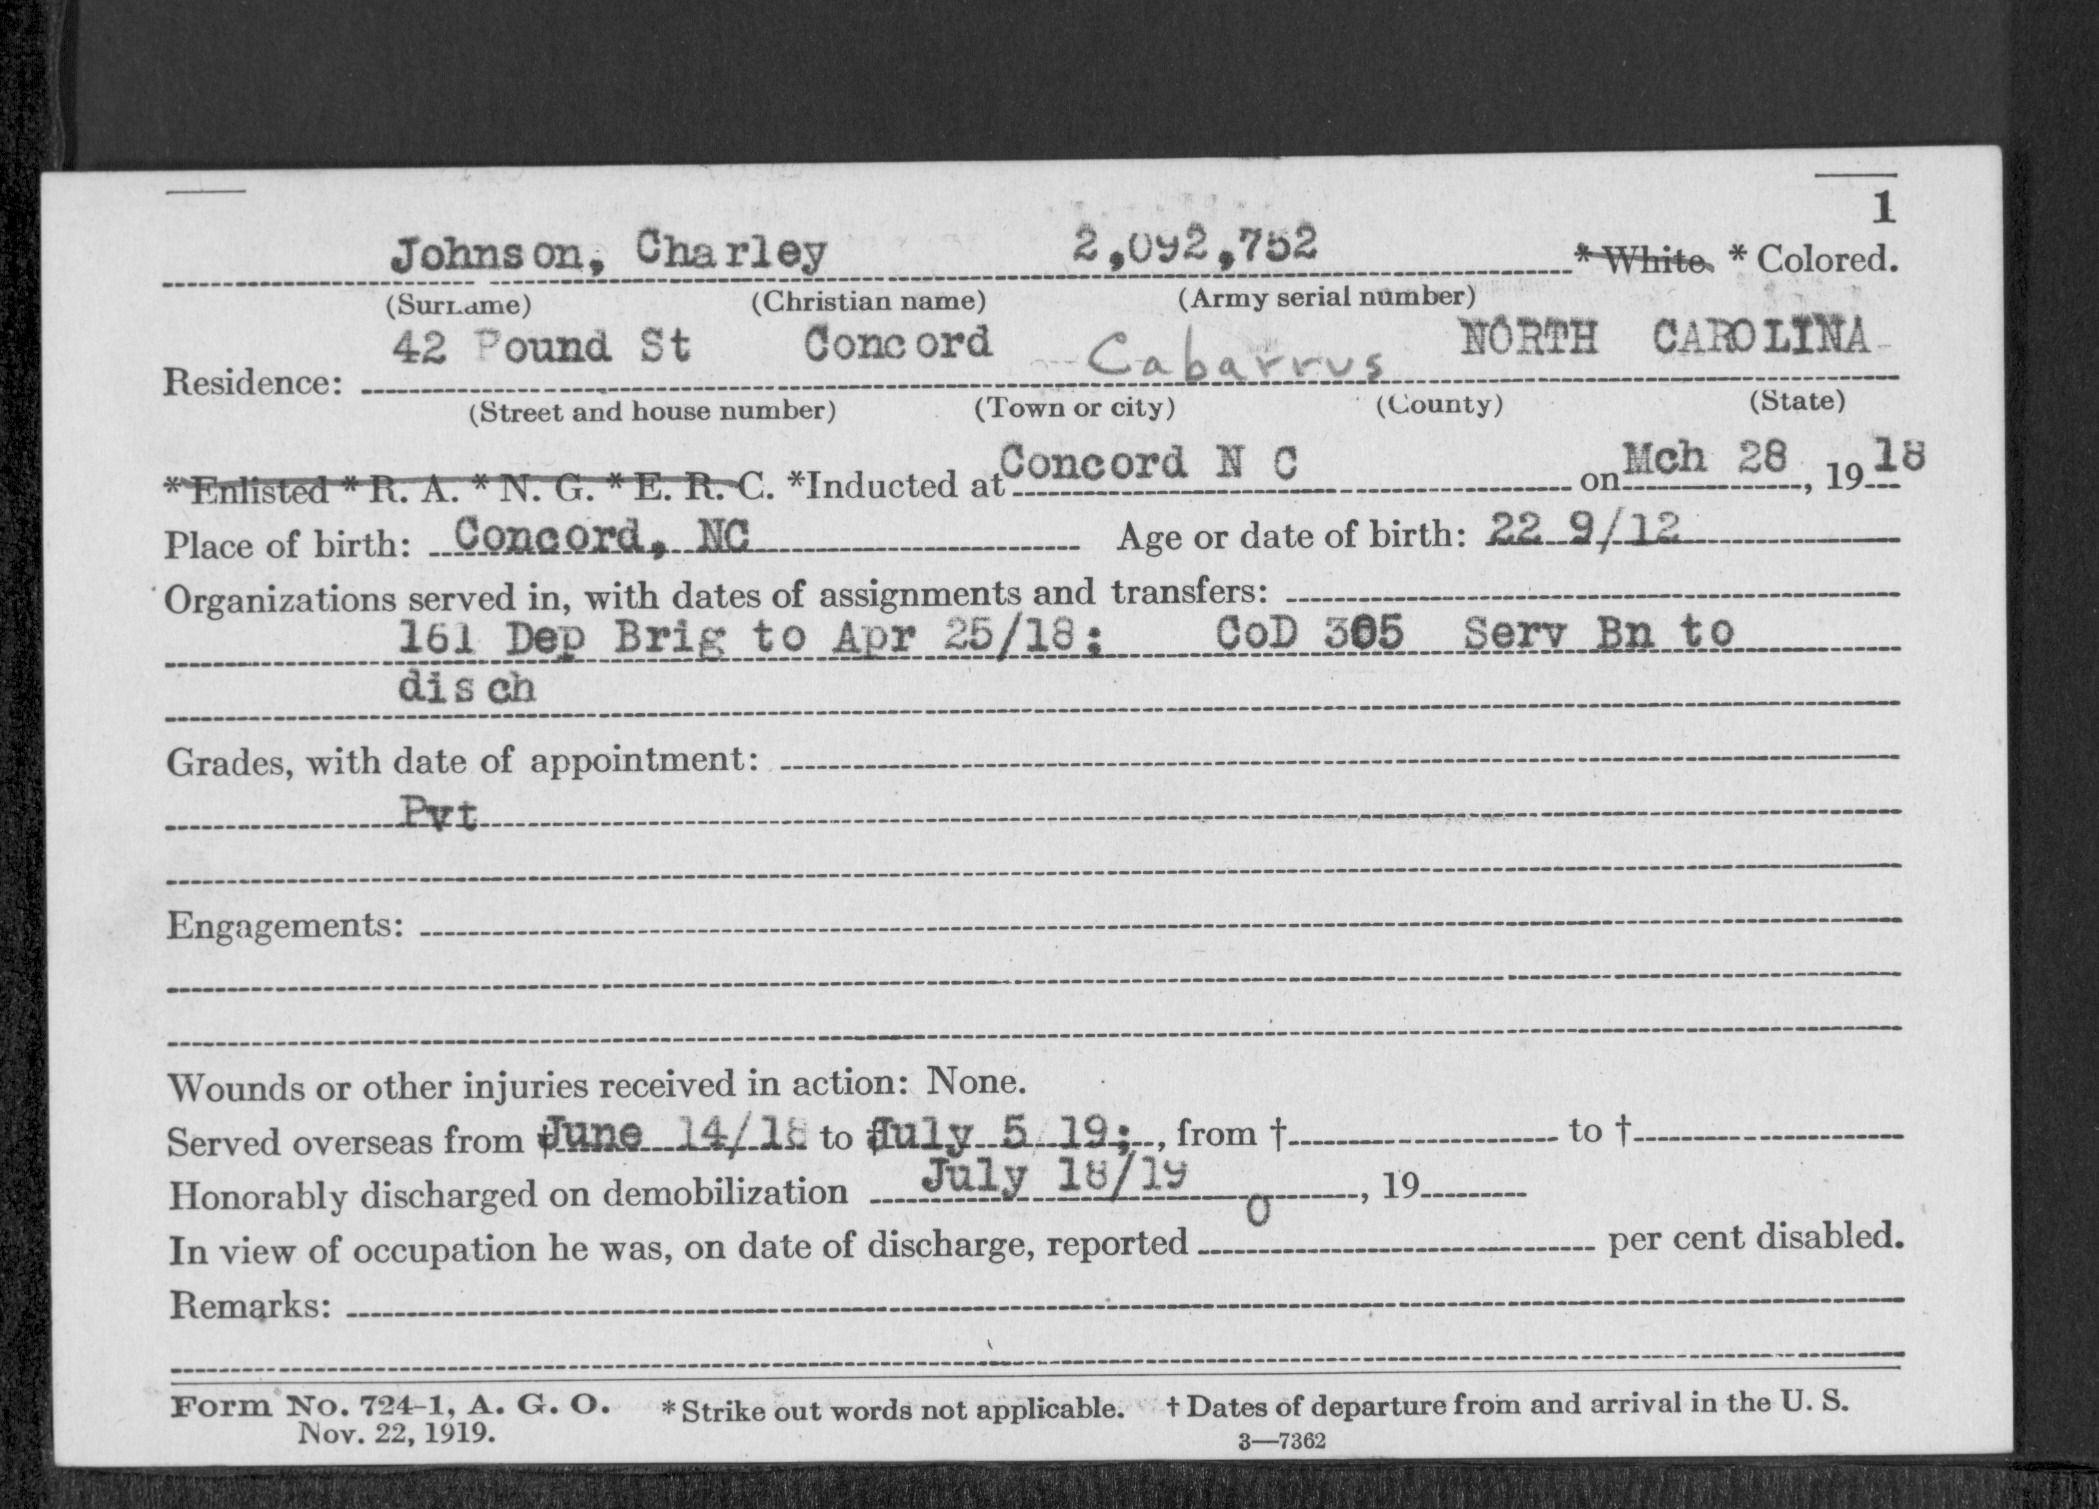 1
Johnson, Charley 2,092,752 * White. * Colored.
(Surname) (Christian name) (Army serial number)
42 Pound St Concord Cabarrus NORTH CAROLINA
Residence:
(Street and house number) (Town or city) (County) (State)
*Enlisted *R. A. *N. G. *E. R. C. *Inducted at Concord N C on Mch 28, 1918
Place of birth: Concord, NC Age or date of birth: 22 9/12
Organizations served in, with dates of assignments and transfers:
161 Dep Brig to Apr 25/18; CoD 305 Serv Bn to
disch
Grades, with date of appointment:
Pvt
Engagements:
Wounds or other injuries received in action: None.
Served overseas from †June 14/18 to †July 5 19;, from † to †
Honorably discharged on demobilization July 18/19, 19
In view of occupation he was, on date of discharge, reported 0 per cent disabled.
Remarks:
Form No. 724-1, A. G. O. * Strike out words not applicable. † Dates of departure from and arrival in the U. S.
Nov. 22, 1919. 3—7362